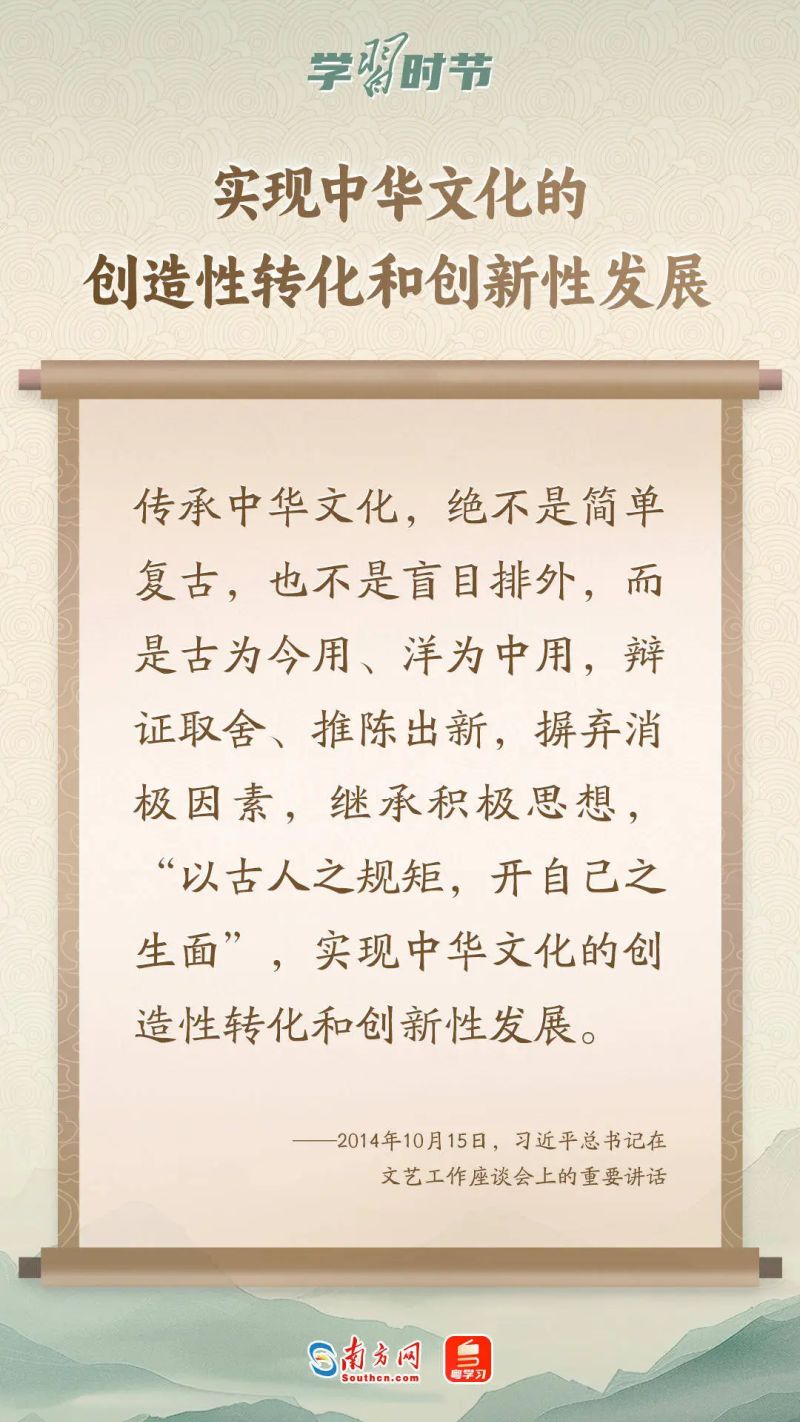 学习时节
实现中华文化的
创造性转化和创新性发展
传承中华文化，绝不是简单
复古，也不是盲目排外，而
是古为今用、洋为中用，辩
证取舍、推陈出新，摒弃消
极因素，继承积极思想，
“以古人之规矩，开自己之
生面”，实现中华文化的创
造性转化和创新性发展。
——2014年10月15日，习近平总书记在
文艺工作座谈会上的重要讲话
南方网
Southcn.com
粤学习